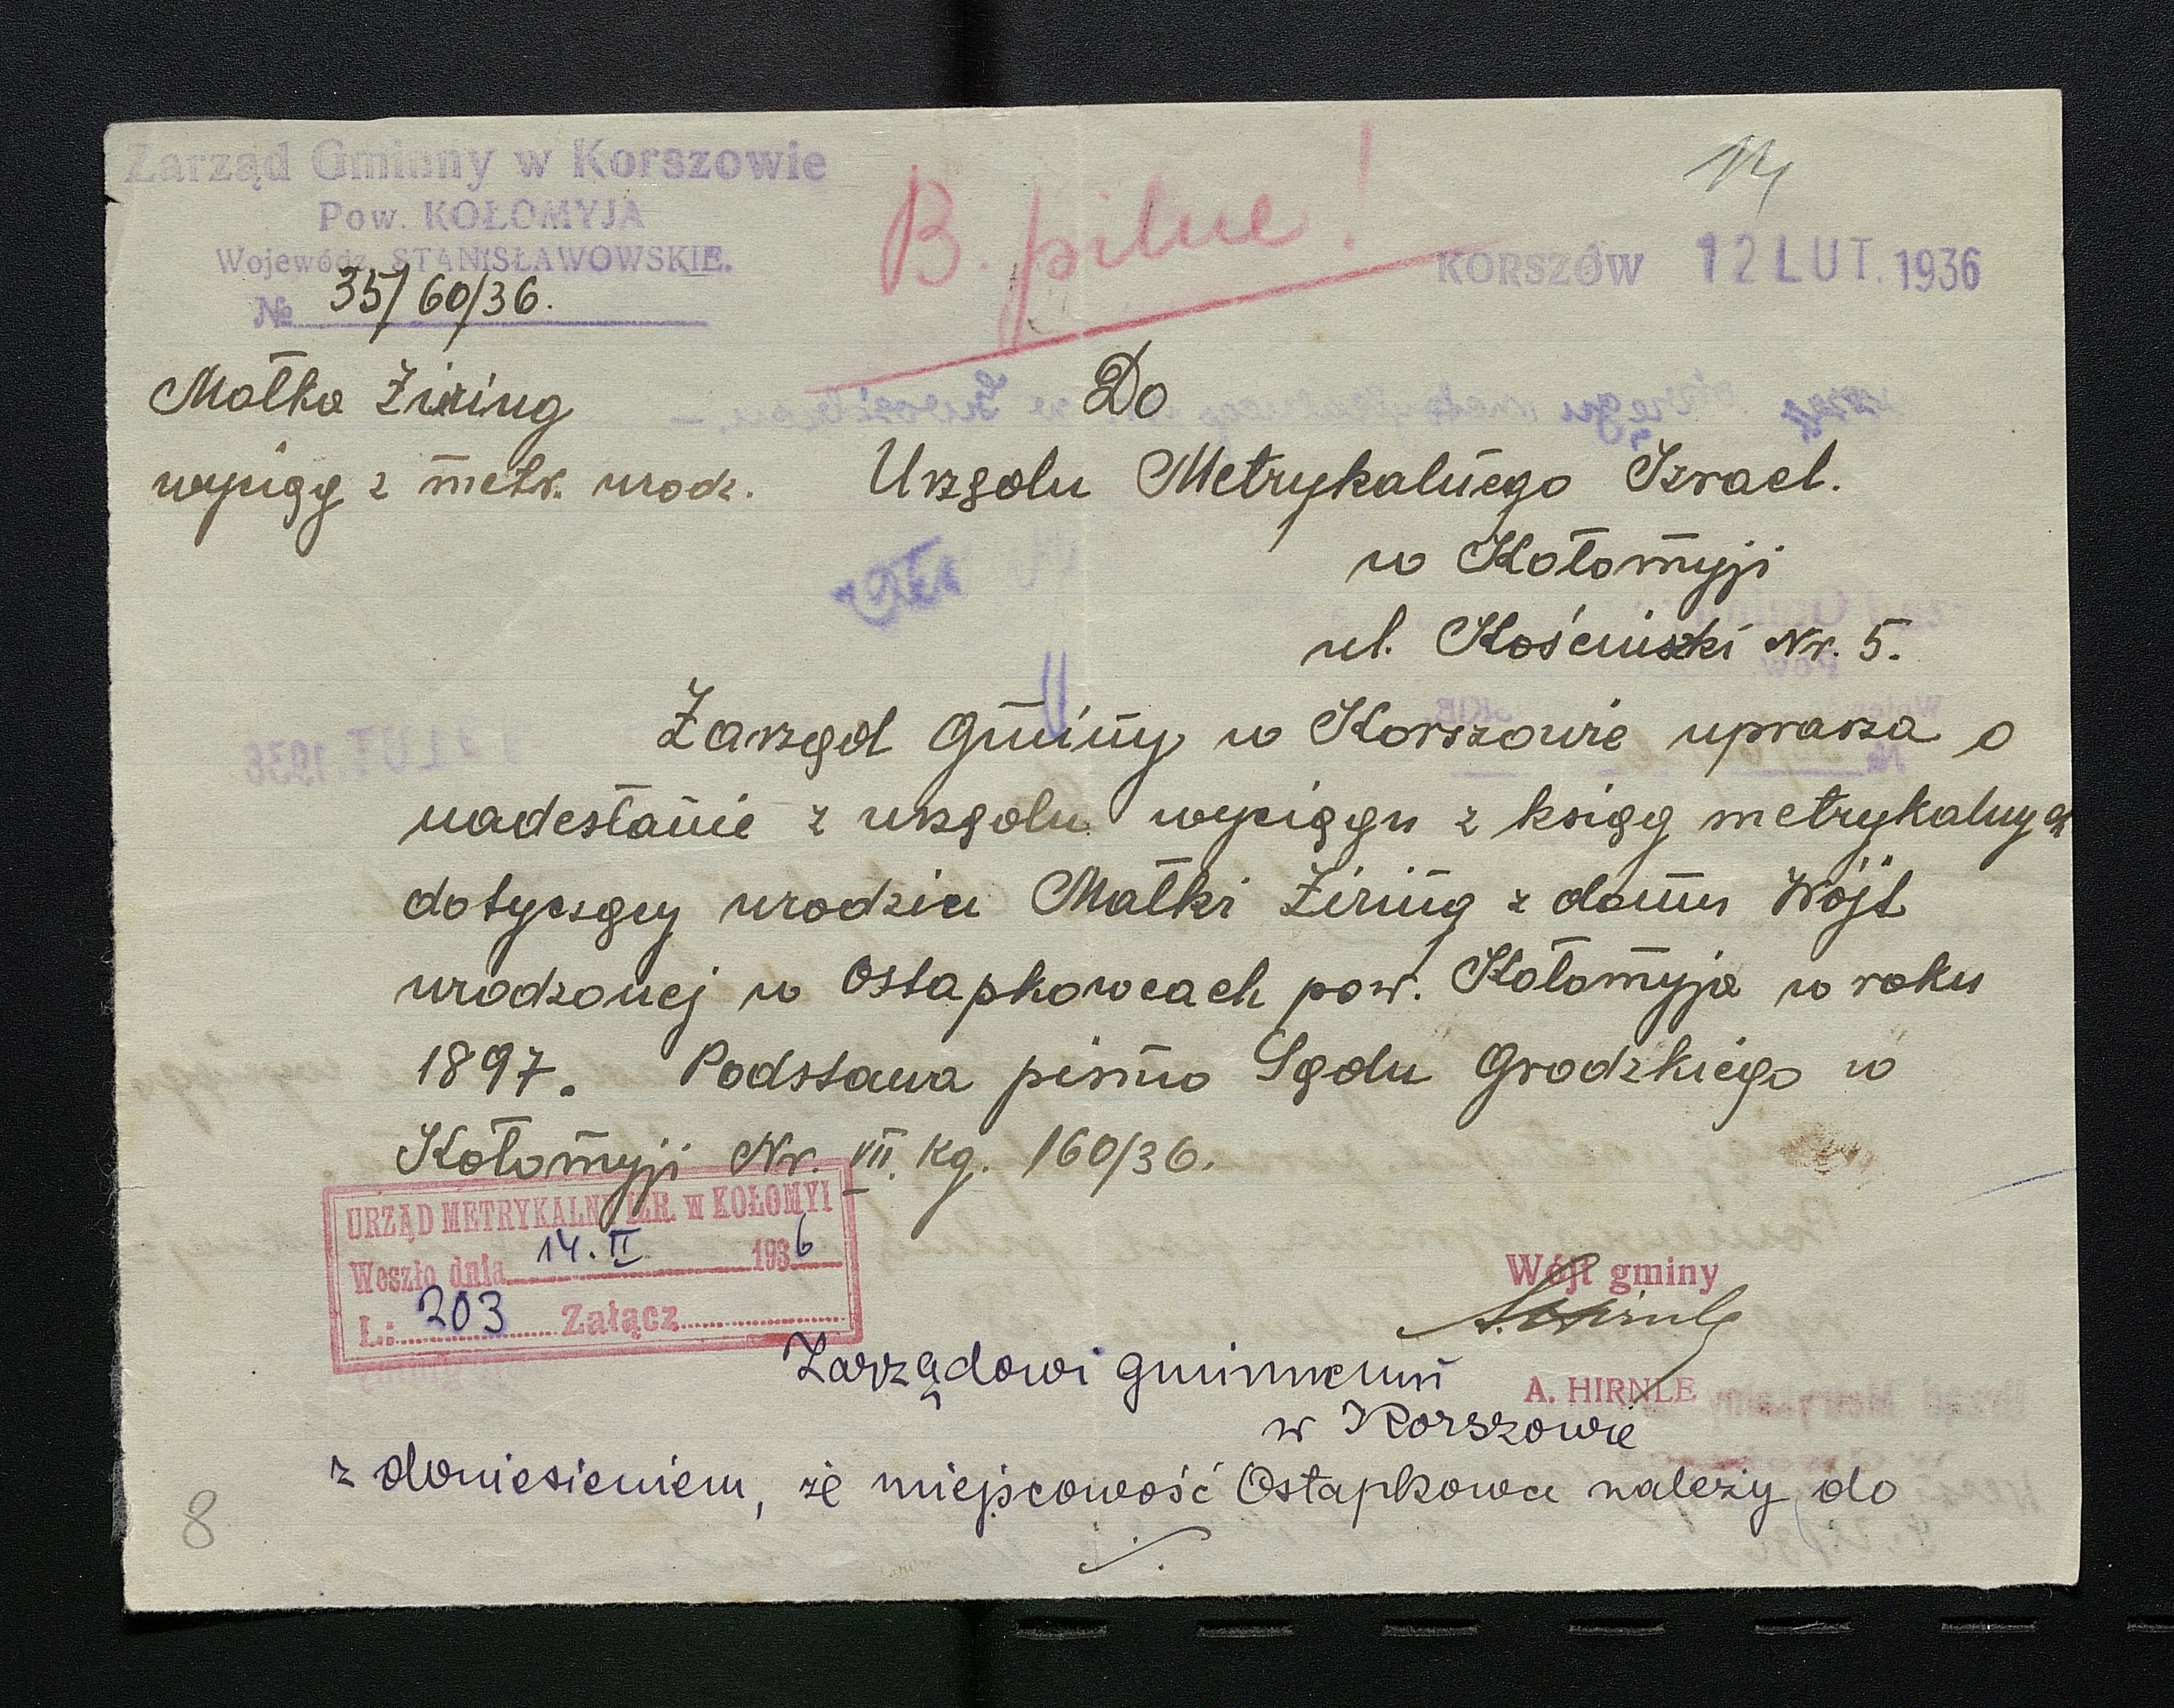 Zarząd Gminny w Korszowie
Pow. KOŁOMYJA
Wojewódz. STANISŁAWOWSKIE.
№ 35/60/36.
B. pilne!
14
KORSZÓW 12 LUT. 1936
Małka Ziring
wyciąg z metr. urodz.
Do
Urzędu Metrykalnego Izrael.
w Kołomyji
ul. Kościuszki Nr. 5.
Zarząd Gminny w Korszowie uprasza o
nadesłanie z urzędu wyciągu z ksiąg metrykalnych
dotyczący urodzin Małki Ziring z domu Wójt
urodzonej w Ostapkowcach pow. Kołomyja w roku
1897. Podstawa pismo Sądu Grodzkiego w
Kołomyji Nr. VII. Kg. 160/36.
URZĄD METRYKALNY IZR. w KOŁOMYI
Weszło dnia 14. II 1936
L.: 203 Załącz.
Wójt gminy
A. HIRNLE
Zarządowi gminnemu
w Korszowie
z doniesieniem, że miejscowość Ostapkowce należy do
./.
8